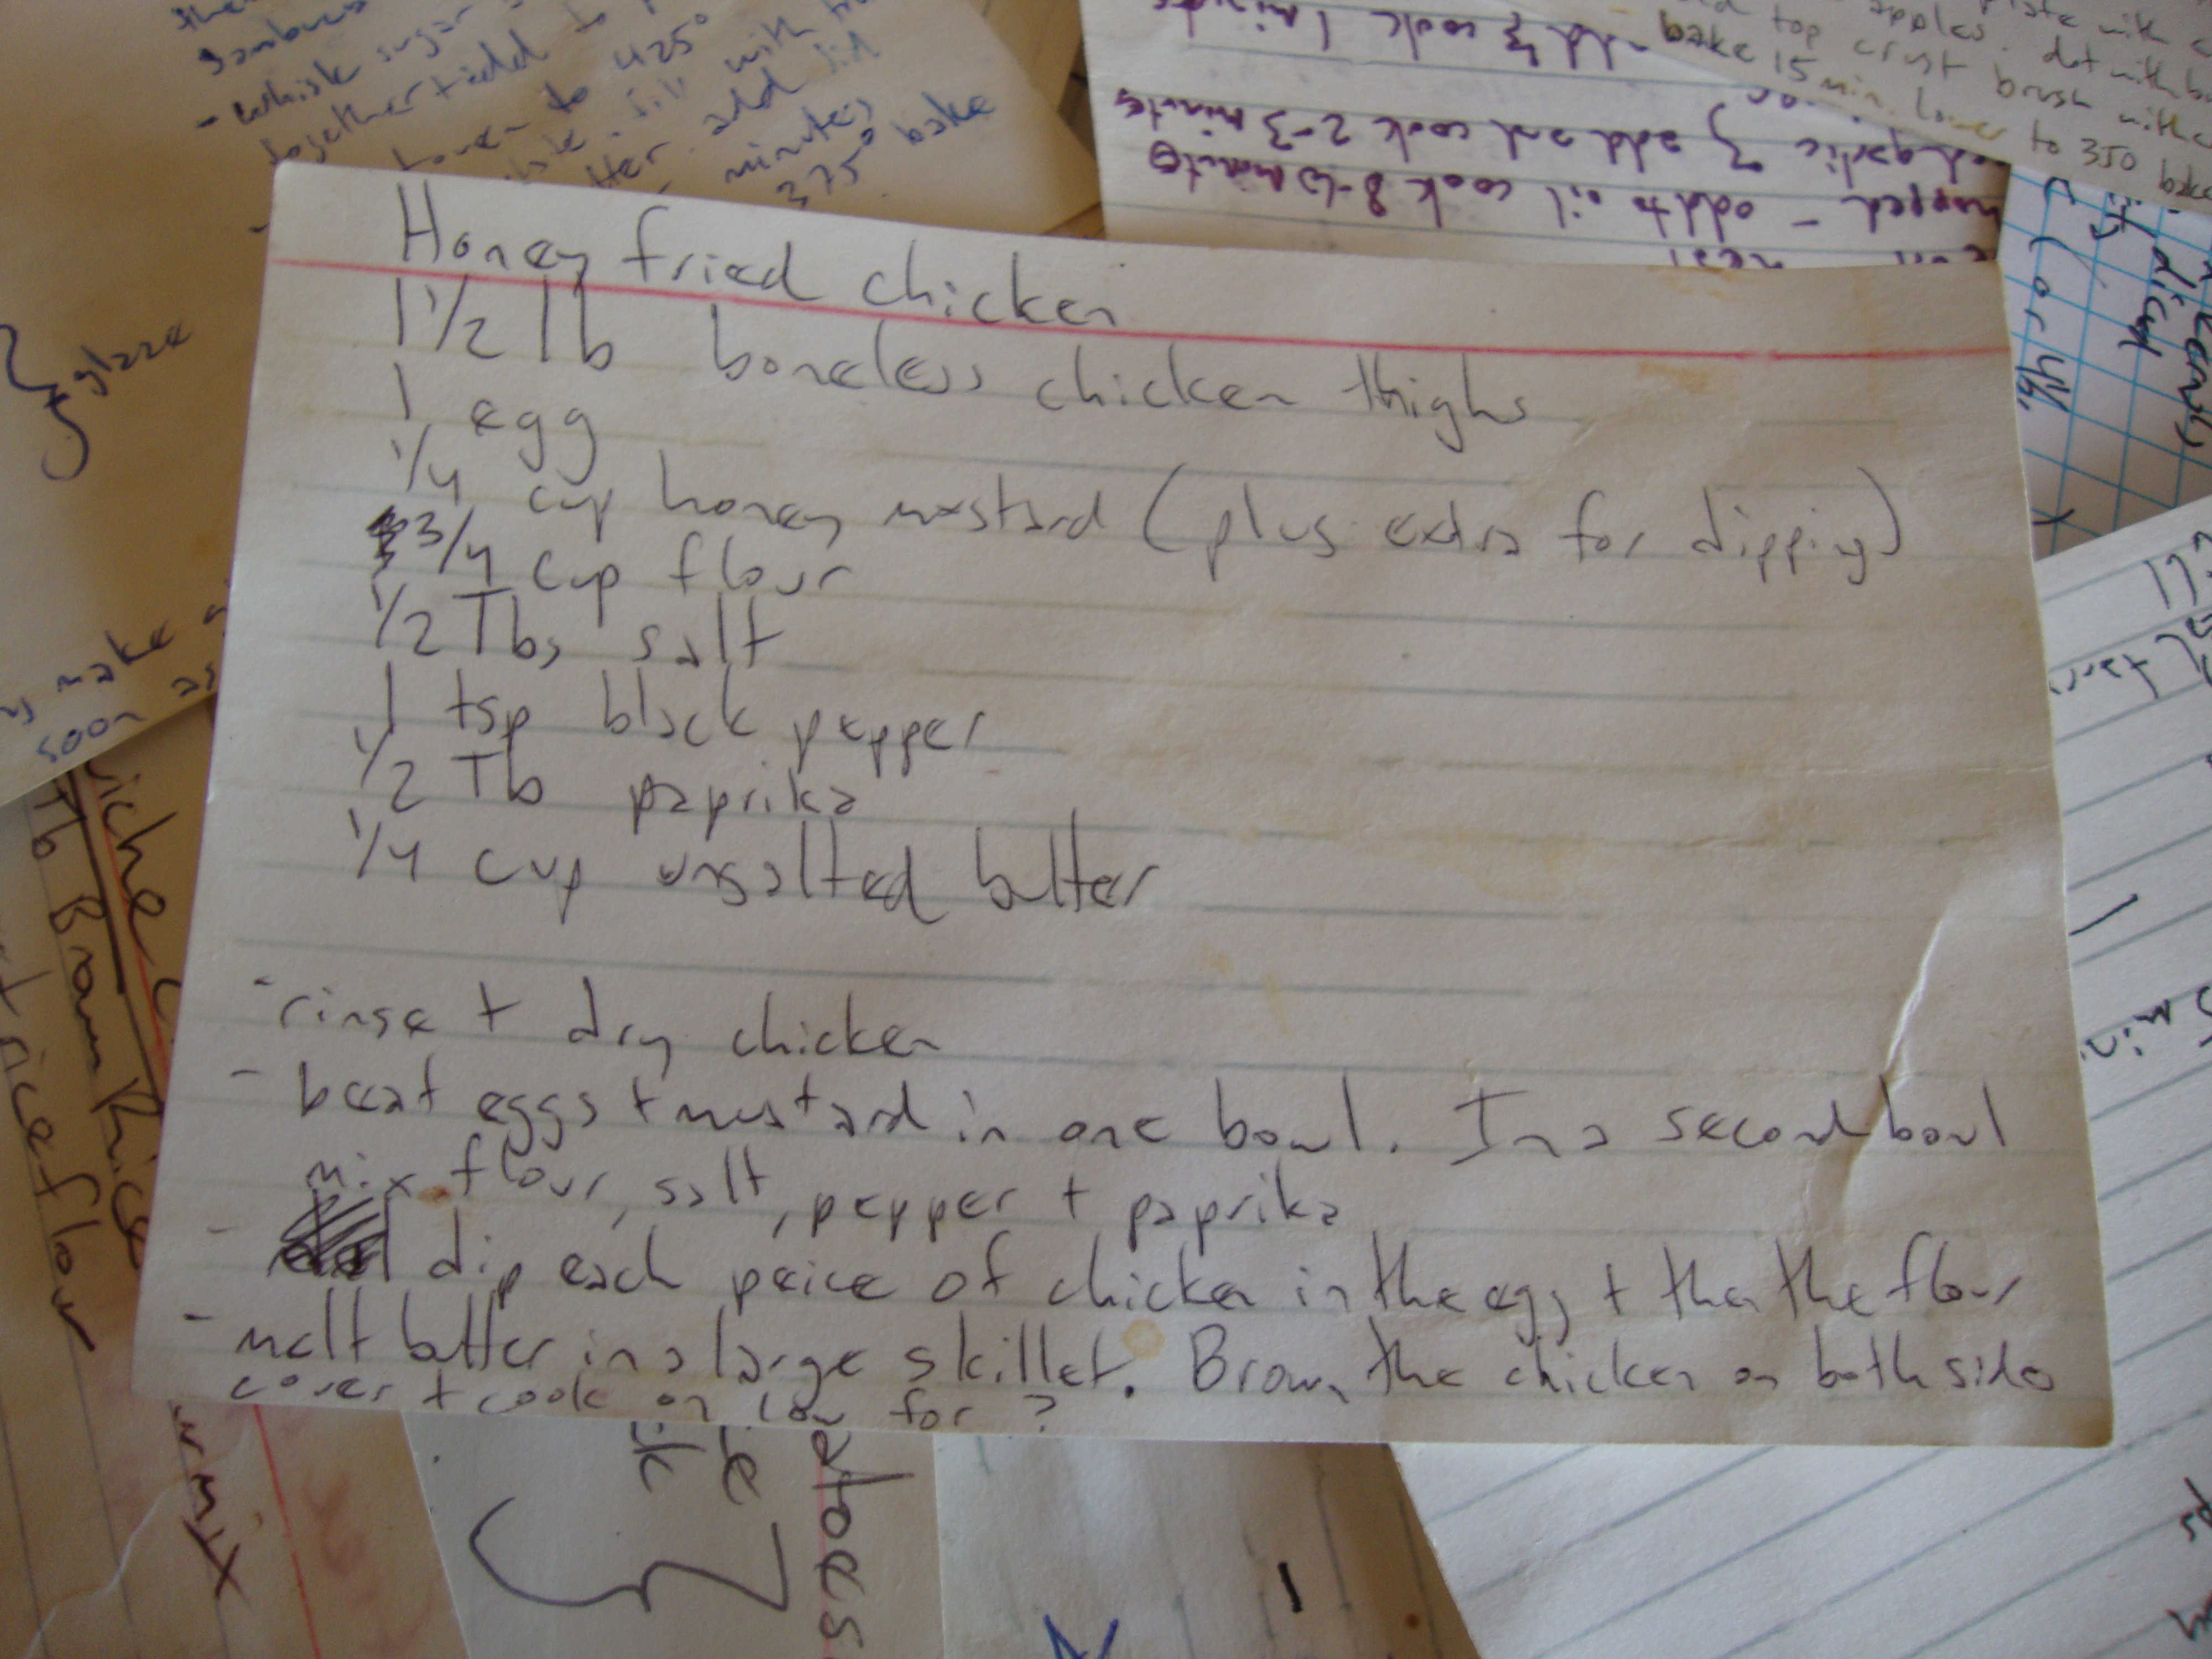 Honey fried chicken
1 1/2 lb boneless chicken thighs
1 egg
1/4 cup honey mustard (plus extra for dipping)
3/4 cup flour
1/2 Tbs salt
1 tsp black pepper
1/2 Tb paprika
1/4 cup unsalted butter
- rinse + dry chicken
- beat eggs + mustard in one bowl. In a second bowl
mix flour, salt, pepper + paprika
- dip each peice of chicken in the egg + then the flour
- melt butter in a large skillet. Brown the chicken on both sides
cover + cook on low for ?
- whisk sugar
together + add to
to 425°
minutes
375° bake
glaze
make
soon as
Tb Brown Rice
rice flour
add & cook 1 minute
add and cook 2-3 minutes
- add to oil cook 8-10 minutes
apples. dot with
top crust brush with
bake 15 min. lower to 350 bake